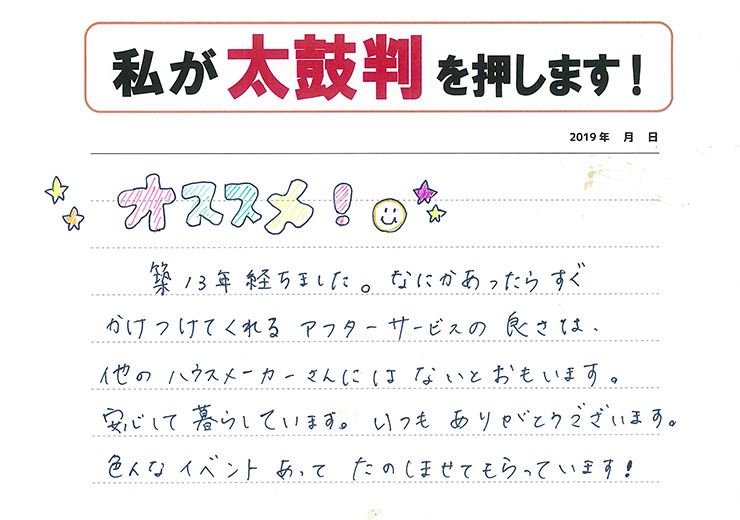 私が太鼓判を押します!
2019年 月 日
オススメ!
築13年経ちました。なにかあったらすぐ
かけつけてくれる アフターサービスの 良さは、
他の ハウスメーカーさんには ないとおもいます。
安心して 暮らしています。いつも ありがとうございます。
色んな イベント あって たのしませてもらっています!